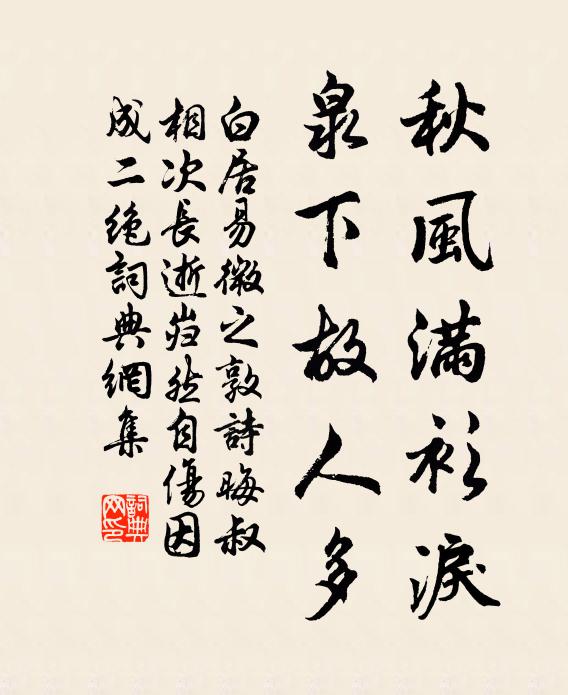 秋風滿衫淚
泉下故人多
白居易微之敦詩晦叔
相次長逝巋然自傷因
成二絶詞典網集
詞典網印